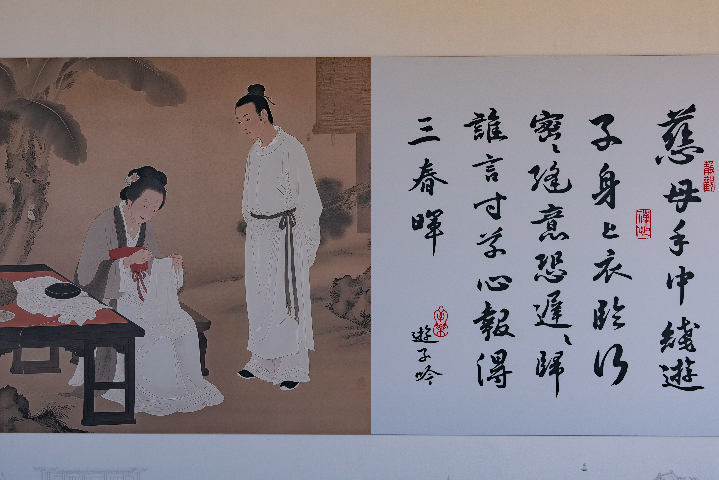 靜觀
慈母手中綫遊
子身上衣臨行
密〻縫意恐遲〻歸
誰言寸草心報得
三春暉
遊子吟